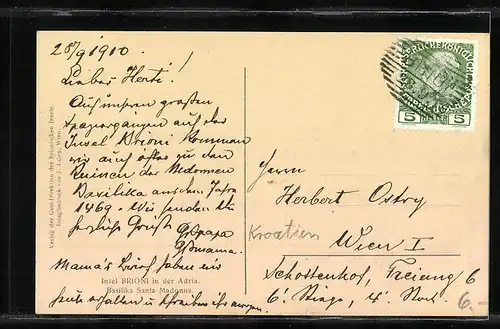 28/9 1910.
Lieber Herti!
Auf unseren großen
Spaziergängen auf der
Insel Brioni kommen
wir auch öfter zu den
Ruinen der Madonnen
Basilika aus dem Jahre
1469. Wir senden Dir
herzliche Grüße
Großpapa
Großmama.
Mama's Brief haben wir
heute erhalten u schreiben ihr morgen.
Insel BRIONI in der Adria.
Basilika Santa Madonna.
Verlag der Gutsdirektion der Brionischen Inseln.
Wien.
5 5
Herrn
Herbert Ostry
Kroatien
Wien I
Schottenhof, Freiung 6
6. Stiege, 4. Stock
6.-